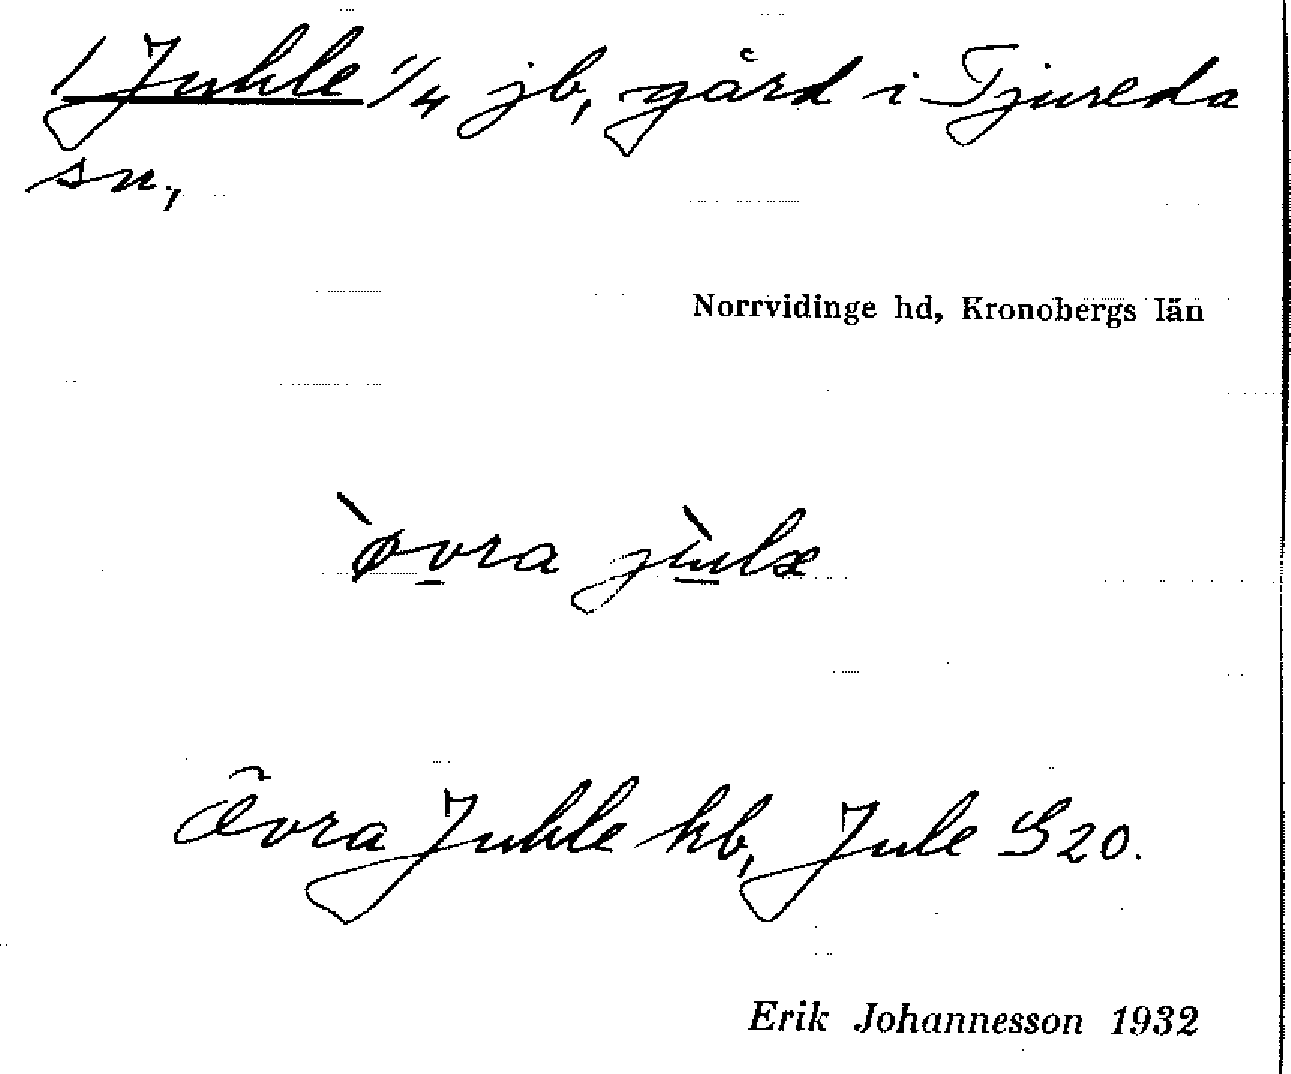 1 Juhle 1/4 jb, gård i Tjureda
sn,
Norrvidinge hd, Kronobergs län
ø̀vra jùlæ
Övra Juhle kb, Jule S20.
Erik Johannesson 1932